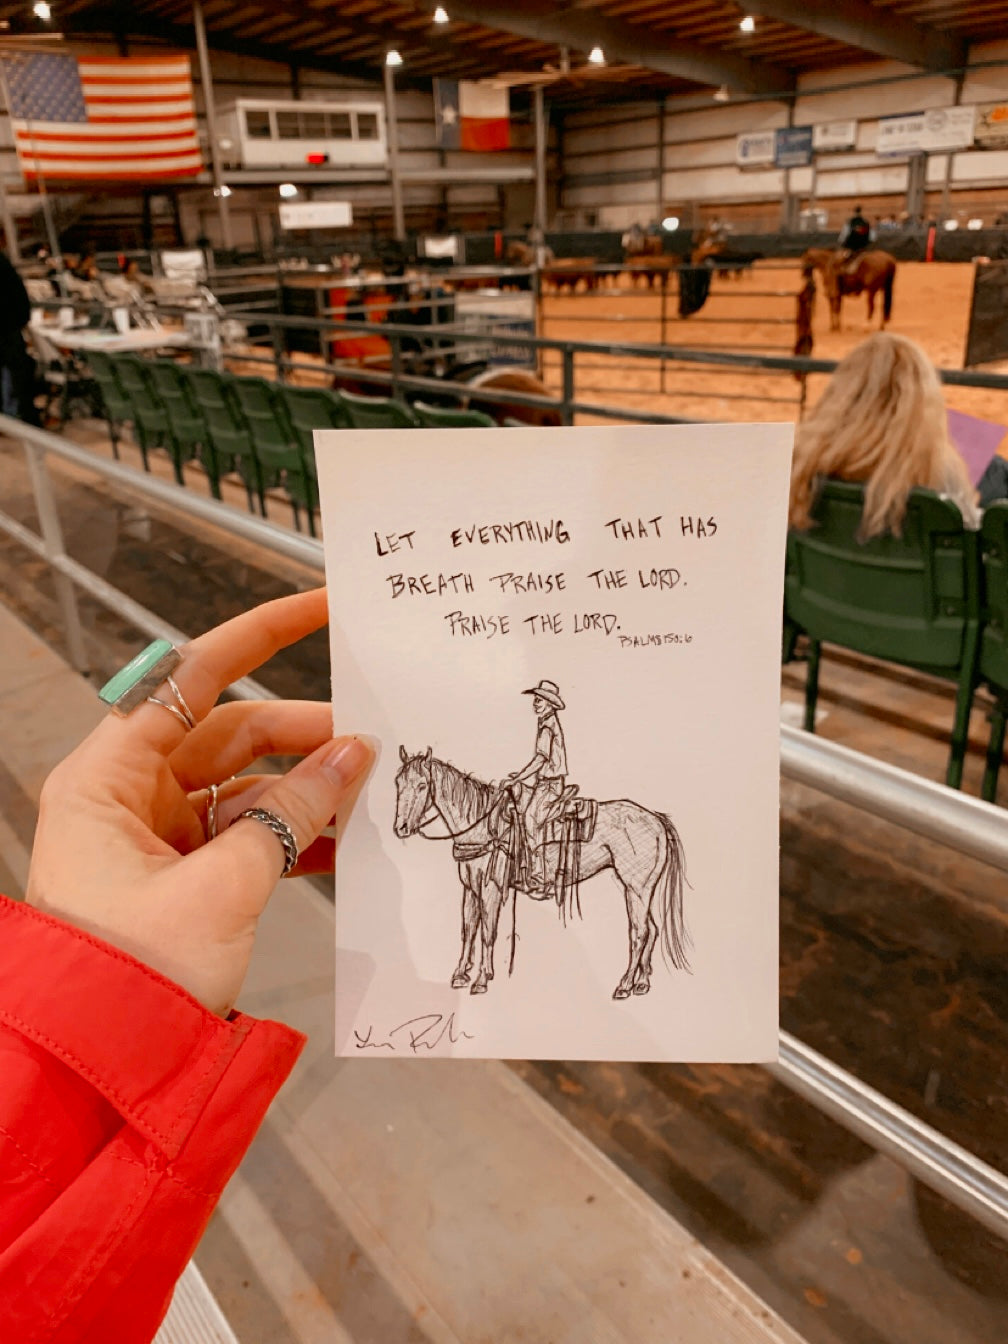 LET EVERYTHING THAT HAS
BREATH PRAISE THE LORD.
PRAISE THE LORD.
PSALMS 150:6